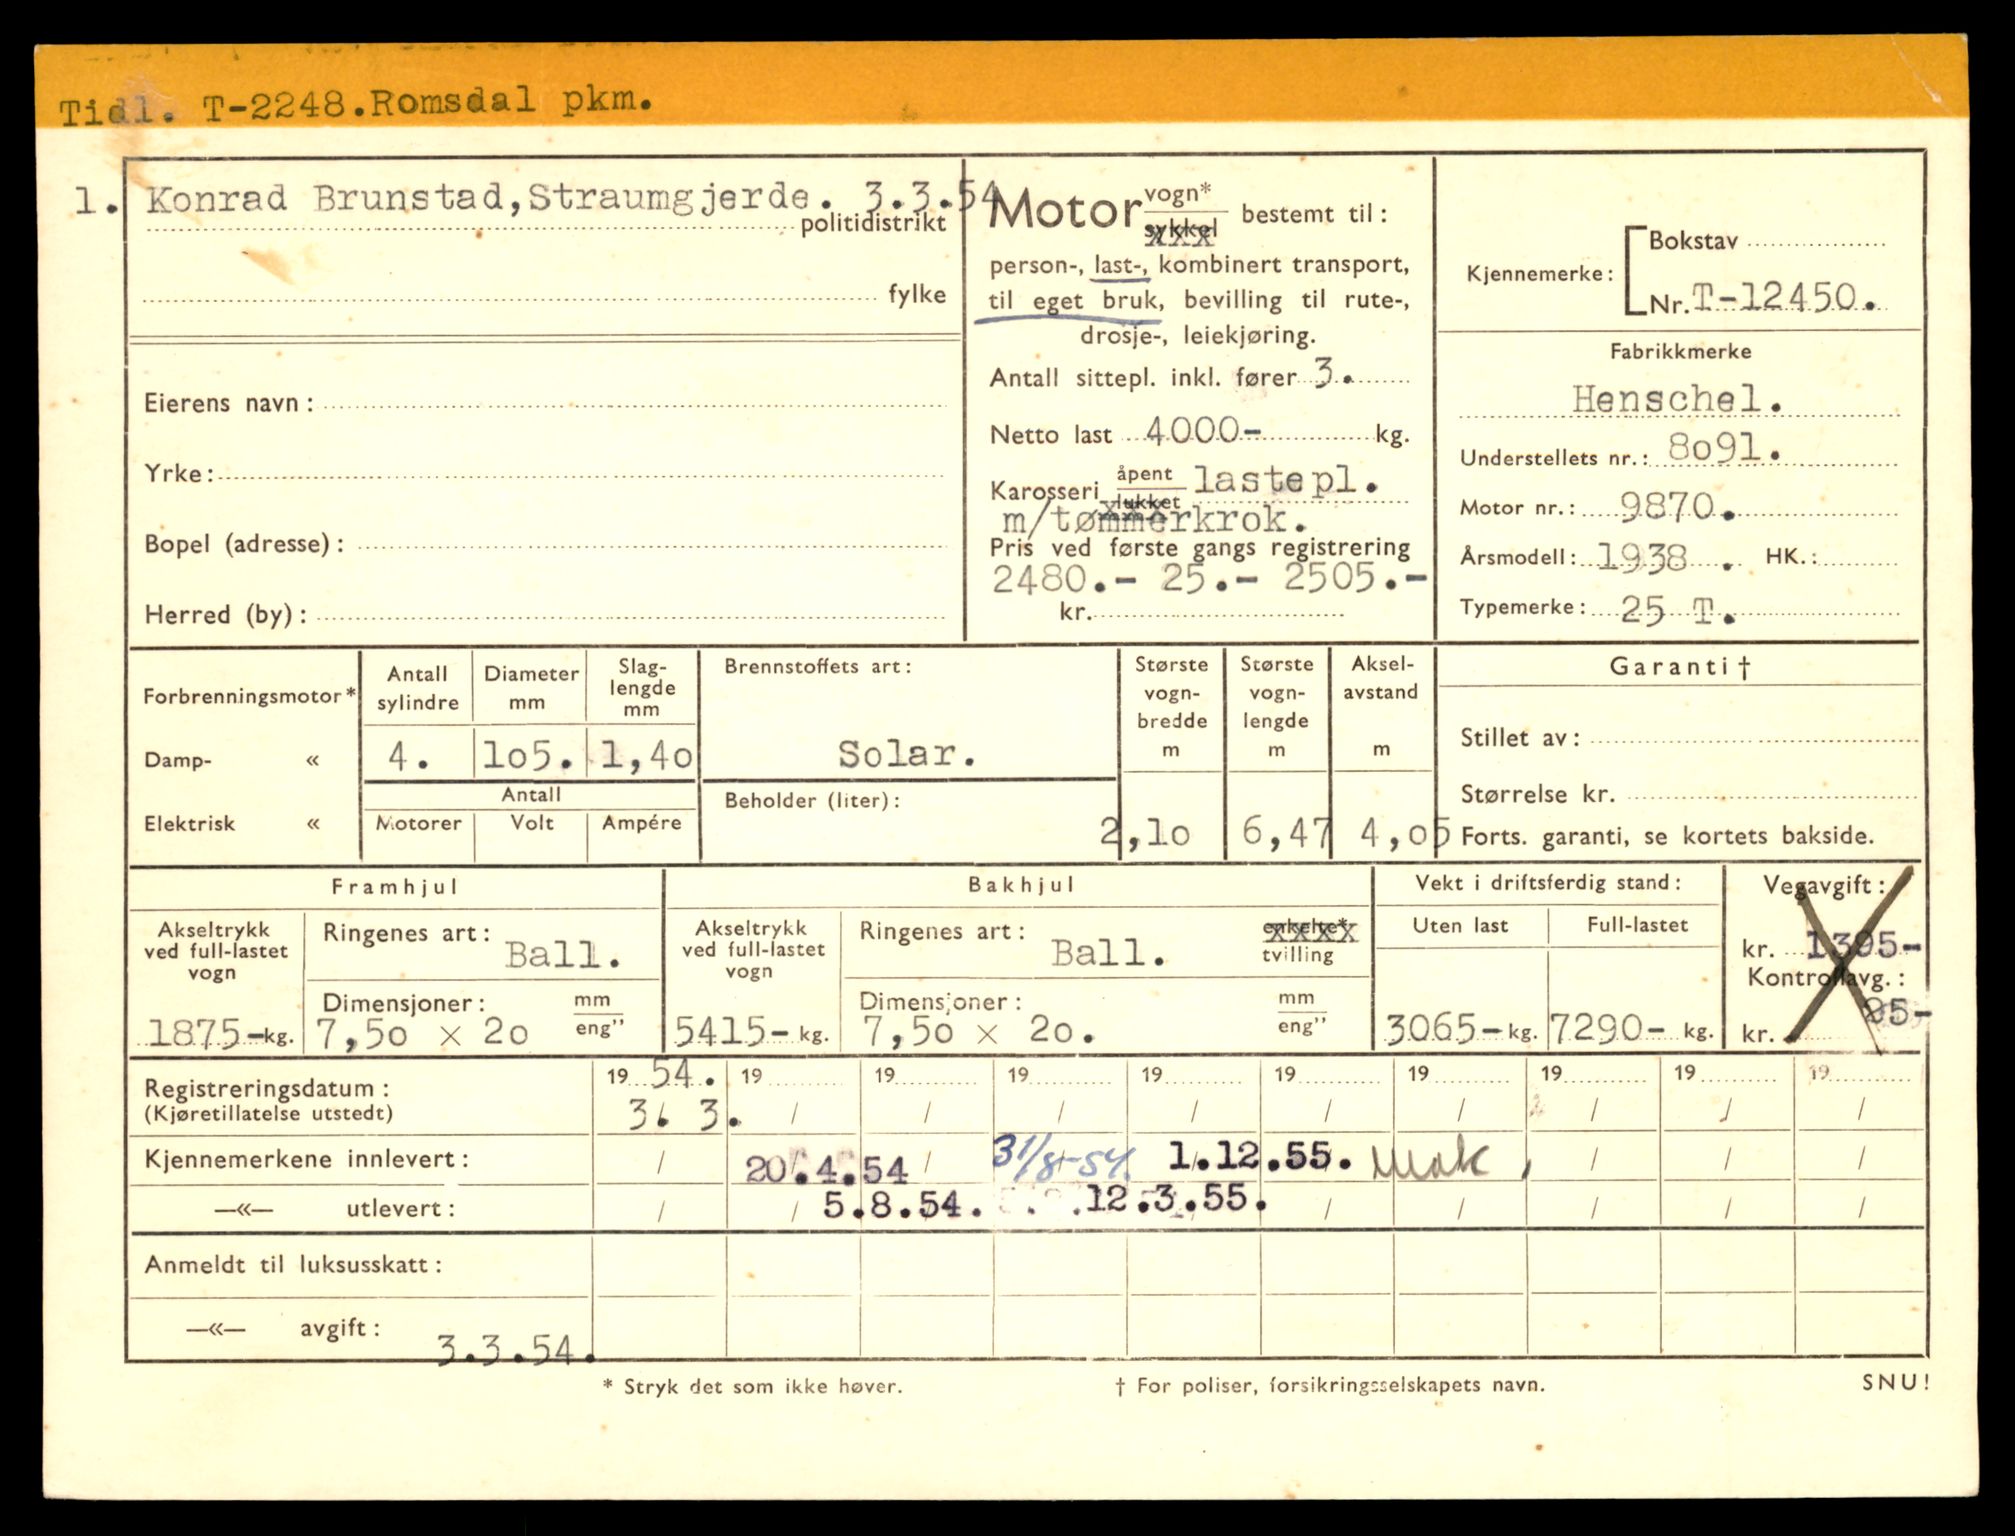 Tidl. T-2248.Romsdal pkm.
1. Konrad Brunstad,Straumgjerde. 3.3.54
politidistrikt
fylke
Eierens navn:
Yrke:
Bopel (adresse):
Herred (by):
Motor vogn* sykkel bestemt til:
person-, last-, kombinert transport,
til eget bruk, bevilling til rute-,
drosje-, leiekjøring.
Antall sittepl. inkl. fører 3.
Netto last 4000- kg.
Karosseri åpent lukket lastepl.
m/tømmerkrok.
Pris ved første gangs registrering
2480.- 25.- 2505.-
kr.
Kjennemerke: Bokstav
Nr. T-12450.
Fabrikkmerke
Henschel.
Understellets nr.: 8o91.
Motor nr.: 9870.
Årsmodell: 1938. HK.:
Typemerke: 25 T.
Forbrenningsmotor*
Damp- «
Elektrisk «
Antall sylindre
Diameter mm
Slag-lengde mm
4. 1o5. 1,4o
Antall
Motorer Volt Ampére
Brennstoffets art:
Solar.
Beholder (liter):
Største vogn-bredde m
Største vogn-lengde m
Aksel-avstand m
2,1o 6,47 4,o5
Garanti†
Stillet av:
Størrelse kr.
Forts. garanti, se kortets bakside.
Framhjul
Akseltrykk ved full-lastet vogn
1875- kg.
Ringenes art: Ball.
Dimensjoner: mm eng”
7,5o x 2o
Bakhjul
Akseltrykk ved full-lastet vogn
5415- kg.
Ringenes art: Ball. enkelte* tvilling
Dimensjoner: mm eng”
7,5o x 2o.
Vekt i driftsferdig stand:
Uten last Full-lastet
3065- kg. 7290- kg.
Vegavgift:
kr. 1395-
Kontrollavg.:
kr. 25-
Registreringsdatum: 19 54. 19 19 19 19 19 19 19 19 19
(Kjøretillatelse utstedt) 3. 3. / / / / / / / / /
Kjennemerkene innlevert: / 20.4.54 / 31/8-54. 1.12.55. / / /
—«— utlevert: / / 5.8.54. 12.3.55. / / / / /
Anmeldt til luksusskatt:
—«— avgift: 3.3.54.
* Stryk det som ikke høver. † For poliser, forsikringsselskapets navn. SNU!